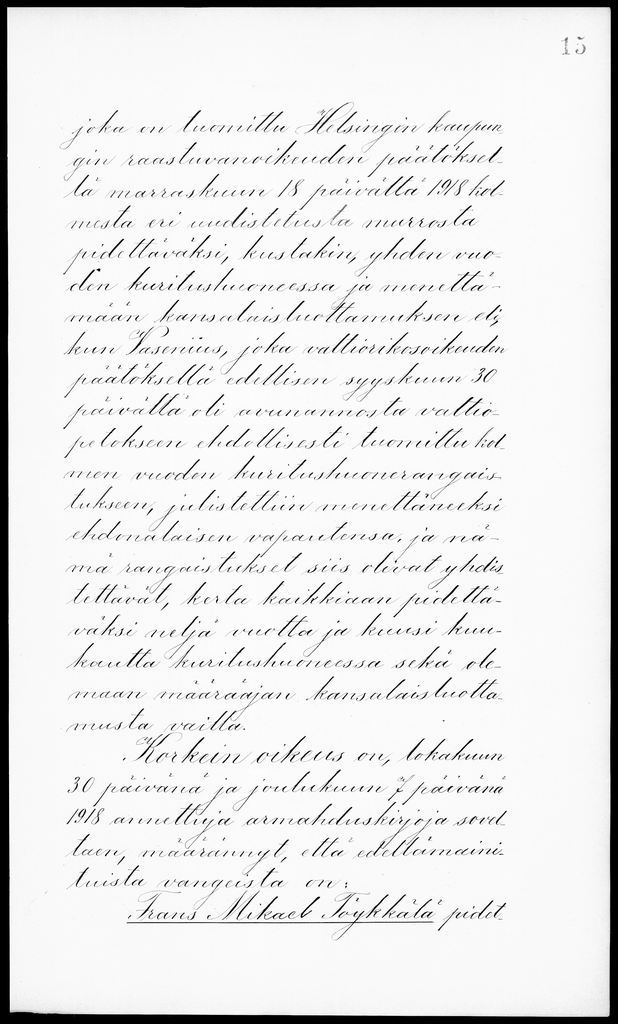 15
joka on tuomittu Helsingin kaupun
gin raastuvanoikeuden päätöksel-
lä marraskuun 18 päivältä 1918 kol-
mesta eri uudistetusta murrosta
pidettäväksi, kustakin, yhden vuo-
den kuritushuoneessa ja menettä-
mään kansalaisluottamuksen eli,
kun Vasenius, joka valtiorikosoikeuden
päätöksellä edellisen syyskuun 30
päivältä oli avunannosta valtio-
petokseen ehdollisesti tuomittu kol-
men vuoden kuritushuonerangais-
tukseen, julistettiin menettäneeksi
ehdonalaisen vapautensa, ja nä-
mä rangaistukset siis olivat yhdis
tettävät, kerta kaikkiaan pidettä-
väksi neljä vuotta ja kuusi kuu-
kautta kuritushuoneessa sekä ole-
maan määräajan kansalaisluotta-
musta vailla.
Korkein oikeus on, lokakuun
30 päivänä ja joulukuun 7 päivänä
1918 annettuja armahduskirjoja sovel
taen, määrännyt, että edellämaini-
tuista vangeista on:
Frans Mikael Töykkälä pidet-